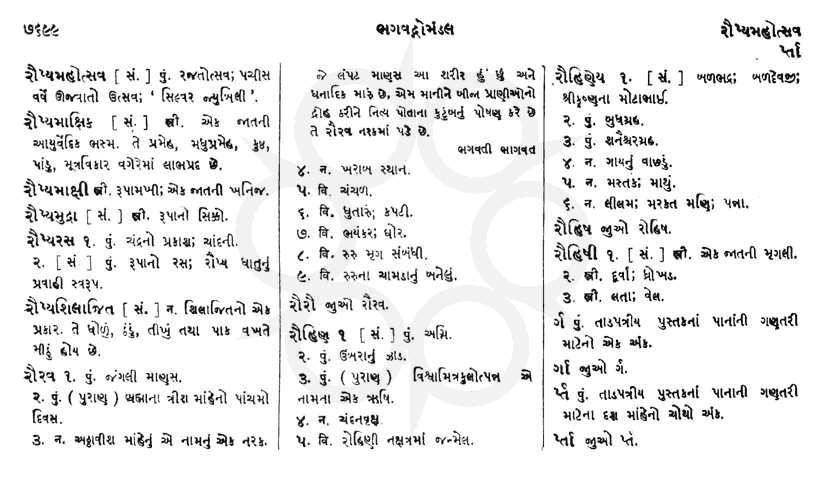 ૭૬૯૯
ભગવદ્ગોમંડલ
રૌપ્યમહોત્સવ
ર્પ્તા
રૌપ્યમહોત્સવ [ સં. ] પું. રજતોત્સવ; પચીસ
વર્ષે ઊજવાતો ઉત્સવ; ‘ સિલ્વર જ્યુબિલી ’.
રૌપ્યમાક્ષિક [ સં. ] સ્ત્રી. એક જાતની
આયુર્વેદિક ભસ્મ. તે પ્રમેહ, મધુપ્રમેહ, કુષ્ઠ,
પાંડુ, મૂત્રવિકાર વગેરેમાં લાભપ્રદ છે.
રૌપ્યમાક્ષી સ્ત્રી. રૂપામખી; એક જાતની ખનિજ.
રૌપ્યમુદ્રા [ સં. ] સ્ત્રી. રૂપાનો સિક્કો.
રૌપ્યરસ ૧. પું. ચંદ્રનો પ્રકાશ; ચાંદની.
૨. [ સં. ] પું. રૂપાનો રસ; રૌપ્ય ધાતુનું
પ્રવાહી સ્વરૂપ.
રૌપ્યશિલાજિત [ સં. ] ન. શિલાજિતનો એક
પ્રકાર. તે ધોળું, ઠંડું, તીખું તથા પાક વખતે
મીઠું હોય છે.
રૌરવ ૧. પું. જંગલી માણસ.
૨. પું. ( પુરાણ ) બ્રહ્માના ત્રીશ માંહેનો પાંચમો
દિવસ.
૩. ન. અઠ્ઠાવીશ માંહેનું એ નામનું એક નરક.
જે લંપટ માણસ આ શરીર હું છું અને
ધનાદિક મારું છે, એમ માનીને બીજા પ્રાણીઓનો
દ્રોહ કરીને નિત્ય પોતાના કુટુંબનું પોષણ કરે છે
તે રૌરવ નરકમાં પડે છે.
ભગવતી ભાગવત
૪. ન. ખરાબ સ્થાન.
૫. વિ. ચંચળ.
૬. વિ. ધુતારું; કપટી.
૭. વિ. ભયંકર; ઘોર.
૮. વિ. રુરુ મૃગ સંબંધી.
૯. વિ. રુરુના ચામડાનું બનેલું.
રૌરૌ જુઓ રૌરવ.
રૌહિણ ૧ [ સં. ] પું. અગ્નિ.
૨. પું. ઉંબરાનું ઝાડ.
૩. પું. ( પુરાણ ) વિશ્વામિત્રકુલોત્પન્ન એ
નામના એક ઋષિ.
૪. ન. ચંદનવૃક્ષ.
૫. વિ. રોહિણી નક્ષત્રમાં જન્મેલ.
રૌહિણેય ૧. [ સં. ] બળભદ્ર; બળદેવજી;
શ્રીકૃષ્ણના મોટાભાઈ.
૨. પું. બુધગ્રહ.
૩. પું. શનૈશ્ચરગ્રહ.
૪. ન. ગાયનું વાછડું.
૫. ન. મસ્તક; માથું.
૬. ન. લીલમ; મરકત મણિ; પન્ના.
રૌહિષ જુઓ રોહિષ.
રૌહિષી ૧. [ સં. ] સ્ત્રી. એક જાતની મૃગલી.
૨. સ્ત્રી. દૂર્વા; ધ્રોખડ.
૩. સ્ત્રી. લતા; વેલ.
ર્ગ પું. તાડપત્રીય પુસ્તકનાં પાનાંની ગણતરી
માટેનો એક અંક.
ર્ગા જુઓ ર્ગ.
ર્પ્ત પું. તાડપત્રીય પુસ્તકનાં પાનાની ગણતરી
માટેના દશ માંહેનો ચોથો અંક.
ર્પ્તા જુઓ ર્પ્ત.